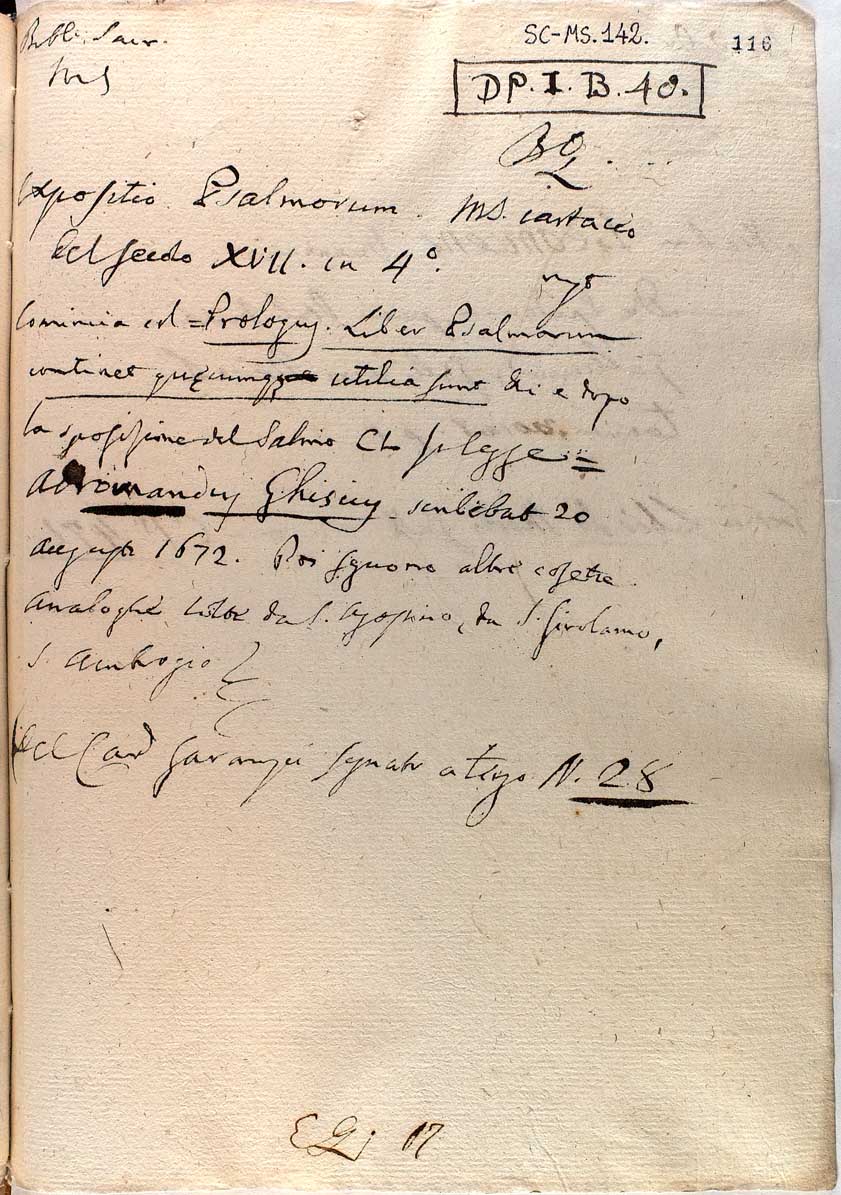 Bibl. Sacr.
SC-MS. 142.
116
MS
DP. I. B. 40.
Expositio Psalmorum. MS. cartaceo
del secolo XVII. in 4°.
Comincia col = Prologus. Liber Psalmorum
continet quęcumque utilia sunt &c e dopo
la sposizione del Salmo CL si legge =
Ghisius scribebat 20
augusti 1672. Poi seguono altre cosette
analoghe tolte da S. Agostino, da S. Girolamo,
S. Ambrogio
Del Card Garampi segnato a tergo N. 28
17